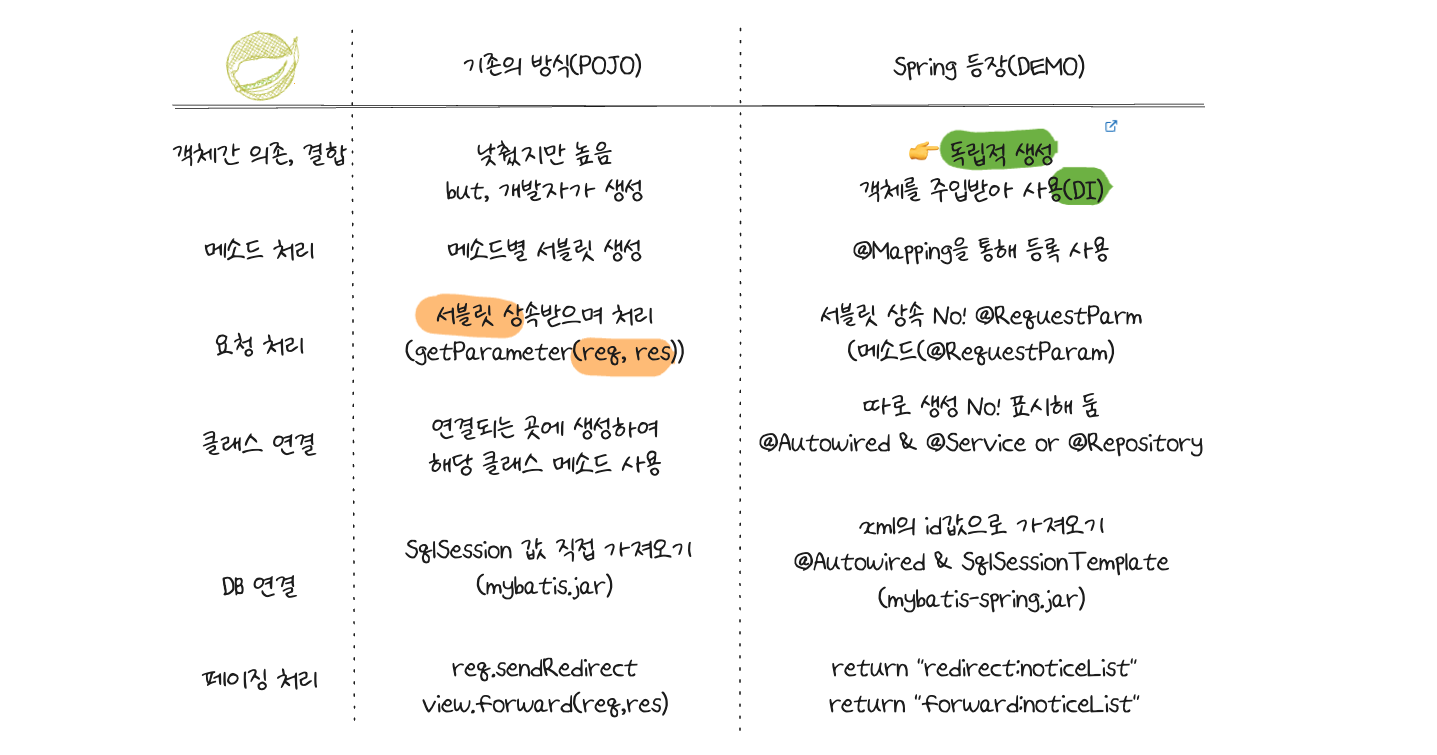 기존의 방식(POJO)
Spring 등장(DEMO)
객체간 의존, 결합
낮췄지만 높음
but, 개발자가 생성
독립적 생성
객체를 주입받아 사용(DI)
메소드 처리
메소드별 서블릿 생성
@Mapping을 통해 등록 사용
요청 처리
서블릿 상속받으며 처리
(getParameter(req, res))
서블릿 상속 No! @RequestParm
(메소드(@RequestParam)
클래스 연결
연결되는 곳에 생성하여
해당 클래스 메소드 사용
따로 생성 No! 표시해 둠
@Autowired & @Service or @Repository
DB 연결
SqlSession 값 직접 가져오기
(mybatis.jar)
xml의 id값으로 가져오기
@Autowired & SqlSessionTemplate
(mybatis-spring.jar)
페이징 처리
req.sendRedirect
view.forward(req,res)
return "redirect:noticeList"
return "forward:noticeList"